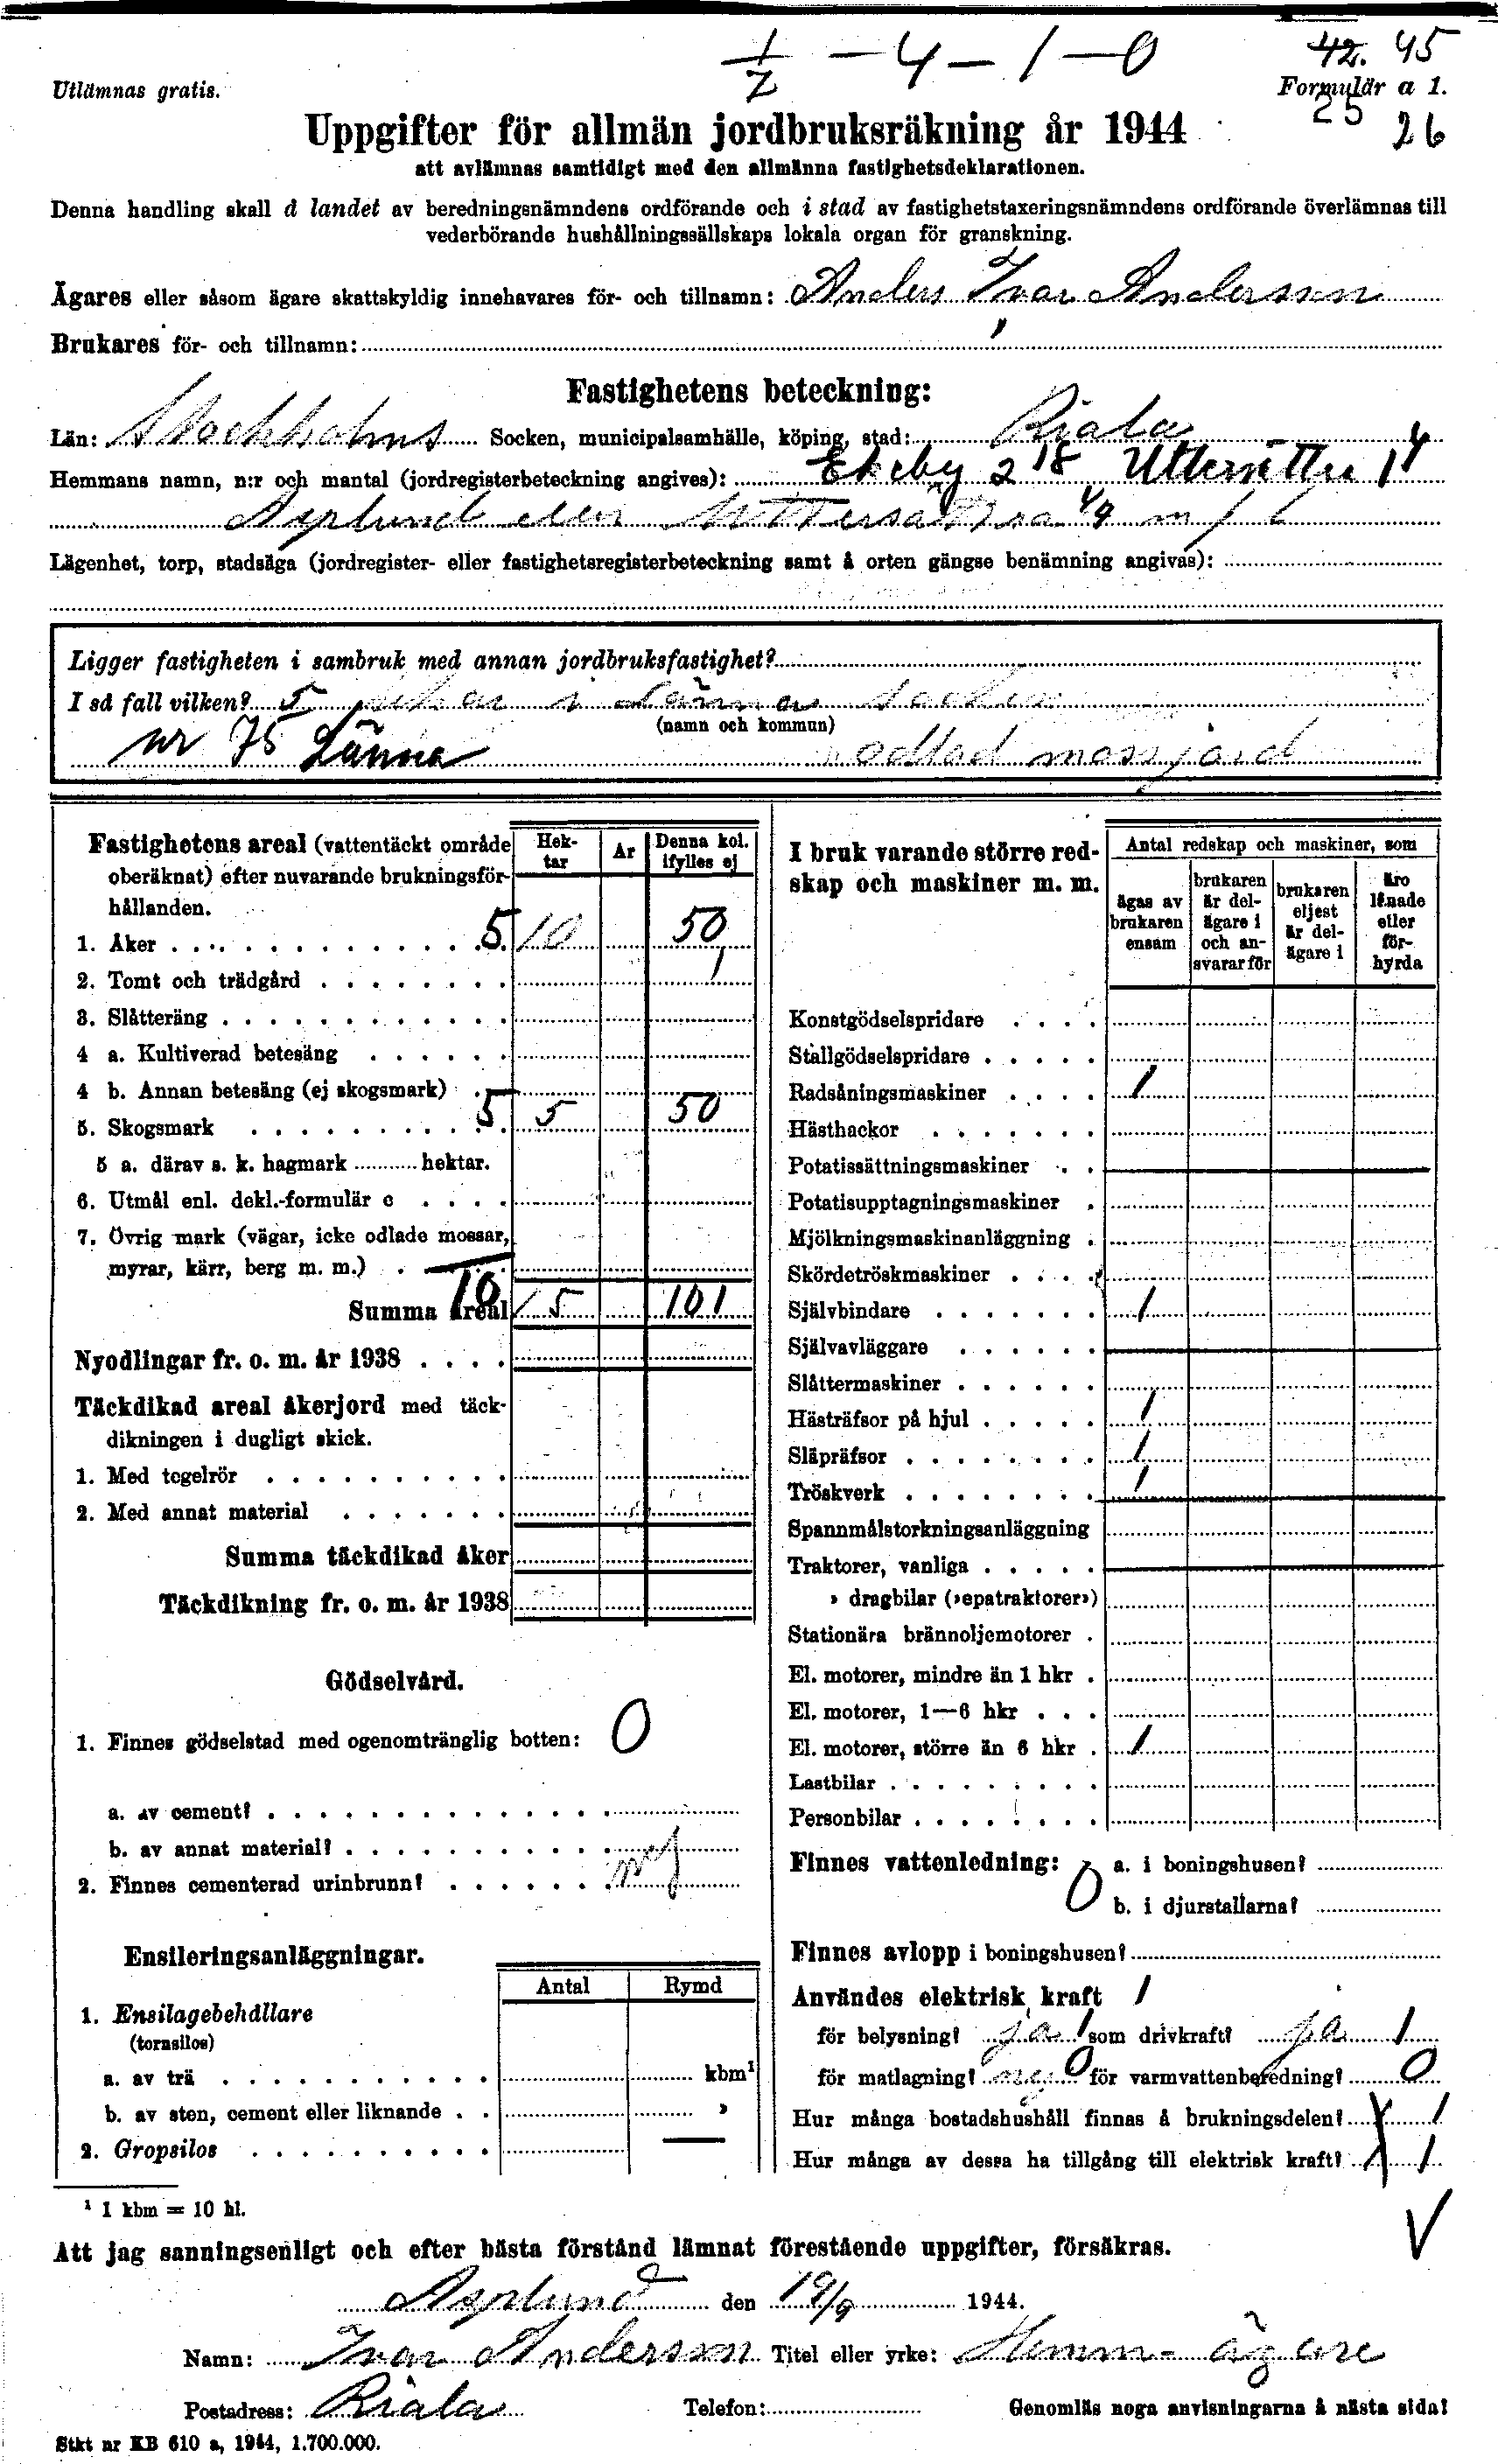 1/2 – 4 – 1 – 0
42. 45
Utlämnas gratis.
Formulär a 1.
25 26
Uppgifter för allmän jordbruksräkning år 1944
att avlämnas samtidigt med den allmänna fastighetsdeklarationen.
Denna handling skall å landet av beredningsnämndens ordförande och i stad av fastighetstaxeringsnämndens ordförande överlämnas till
vederbörande hushållningssällskaps lokala organ för granskning.
Ägares eller såsom ägare skattskyldig innehavares för- och tillnamn: Anders Ivar Andersson
Brukares för- och tillnamn:
Fastighetens beteckning:
Län: Stockholms Socken, municipalsamhälle, köping, stad: Riala
Hemmans namn, n:r och mantal (jordregisterbeteckning angives): Ekeby 2 18 1 4
Asplund eller
Lägenhet, torp, stadsäga (jordregister- eller fastighetsregisterbeteckning samt å orten gängse benämning angivas):
Ligger fastigheten i sambruk med annan jordbruksfastighet?
I så fall vilken? 5 i Länna Socken
(namn och kommun)
nr 75 Länna odlad mossjord
Fastighetens areal (vattentäckt område oberäknat) efter nuvarande brukningsförhållanden.
Hektar Ar Denna kol. ifylles ej
1. Åker 5 10 50
2. Tomt och trädgård 1
3. Slåtteräng
4 a. Kultiverad betesäng
4 b. Annan betesäng (ej skogsmark)
5. Skogsmark 5 5 50
5 a. därav s. k. hagmark hektar.
6. Utmål enl. dekl.-formulär c
7. Övrig mark (vägar, icke odlade mossar,
myrar, kärr, berg m. m.)
Summa areal 10 15 101
Nyodlingar fr. o. m. år 1938
Täckdikad areal åkerjord med täck-
dikningen i dugligt skick.
1. Med tegelrör
2. Med annat material
Summa täckdikad åker
Täckdikning fr. o. m. år 1938
Gödselvård.
1. Finnes gödselstad med ogenomtränglig botten: 0
a. av cement?
b. av annat material?
2. Finnes cementerad urinbrunn? nej
Ensileringsanläggningar.
Antal Rymd
1. Ensilagebehållare
(tornsilos)
a. av trä kbm¹
b. av sten, cement eller liknande »
2. Gropsilos
¹ 1 kbm = 10 hl.
I bruk varande större red-
skap och maskiner m. m.
Antal redskap och maskiner, som
ägas av brukaren ensam
brukaren är delägare i och ansvarar för
brukaren eljest är delägare i
äro lånade eller förhyrda
Konstgödselspridare
Stallgödselspridare
Radsåningsmaskiner 1
Hästhackor
Potatissättningsmaskiner
Potatisupptagningsmaskiner
Mjölkningsmaskinanläggning
Skördetröskmaskiner
Självbindare 1
Självavläggare
Slåttermaskiner
Hästräfsor på hjul 1
Släpräfsor 1
Tröskverk 1
Spannmålstorkningsanläggning
Traktorer, vanliga
» dragbilar (»epatraktorer»)
Stationära brännoljemotorer
El. motorer, mindre än 1 hkr
El. motorer, 1—6 hkr
El. motorer, större än 6 hkr 1
Lastbilar
Personbilar
Finnes vattenledning: 0 a. i boningshusen?
b. i djurstallarna?
Finnes avlopp i boningshusen?
Användes elektrisk kraft 1
för belysning? ja 1 som drivkraft? ja 1
för matlagning? nej 0 för varmvattenberedning? 0
Hur många bostadshushåll finnas å brukningsdelen? 1
Hur många av dessa ha tillgång till elektrisk kraft? 1
Att jag sanningsenligt och efter bästa förstånd lämnat förestående uppgifter, försäkras.
Asplund den 19/9 1944.
Namn: Ivar Andersson Titel eller yrke: Hemm-ägare
Postadress: Riala Telefon: Genomläs noga anvisningarna å nästa sida!
Stkt nr KB 610 a, 1944, 1.700.000.